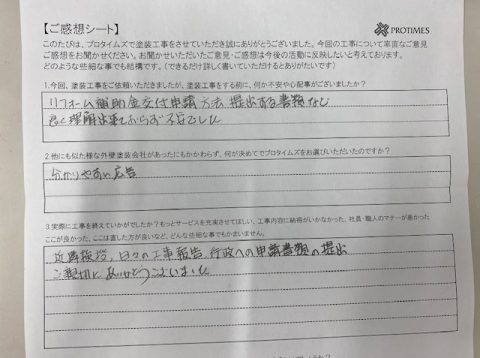 【ご感想シート】
PROTIMES
このたびは、プロタイムズで塗装工事をさせていただき誠にありがとうございました。今回の工事について率直なご意見
ご感想をお聞かせください。お聞かせいただいたご意見・ご感想は今後の活動に反映したいと考えております。
どのような些細な事でも結構です。（できるだけ詳しく書いていただけるとありがたいです）
1.今回、塗装工事をご依頼いただきましたが、塗装工事をする前に、何か不安や心配事がございましたか？
リフォーム補助金交付申請方法、提出する書類など
良く理解出来ておらず不安でした
2.他にも似た様な外壁塗装会社があったにもかかわらず、何が決めてでプロタイムズをお選びいただいたのですか？
分かりやすい広告
3.実際に工事を終えていかがでしたか？もっとサービスを充実させてほしい、工事内容に納得がいかなかった、社員・職人のマナーが悪かった
ここが良かった、ここは直した方が良いなど、どんな些細な事でもかまいません。
近隣挨拶、日々の工事報告、行政への申請書類の提出
ご親切にありがとうございました